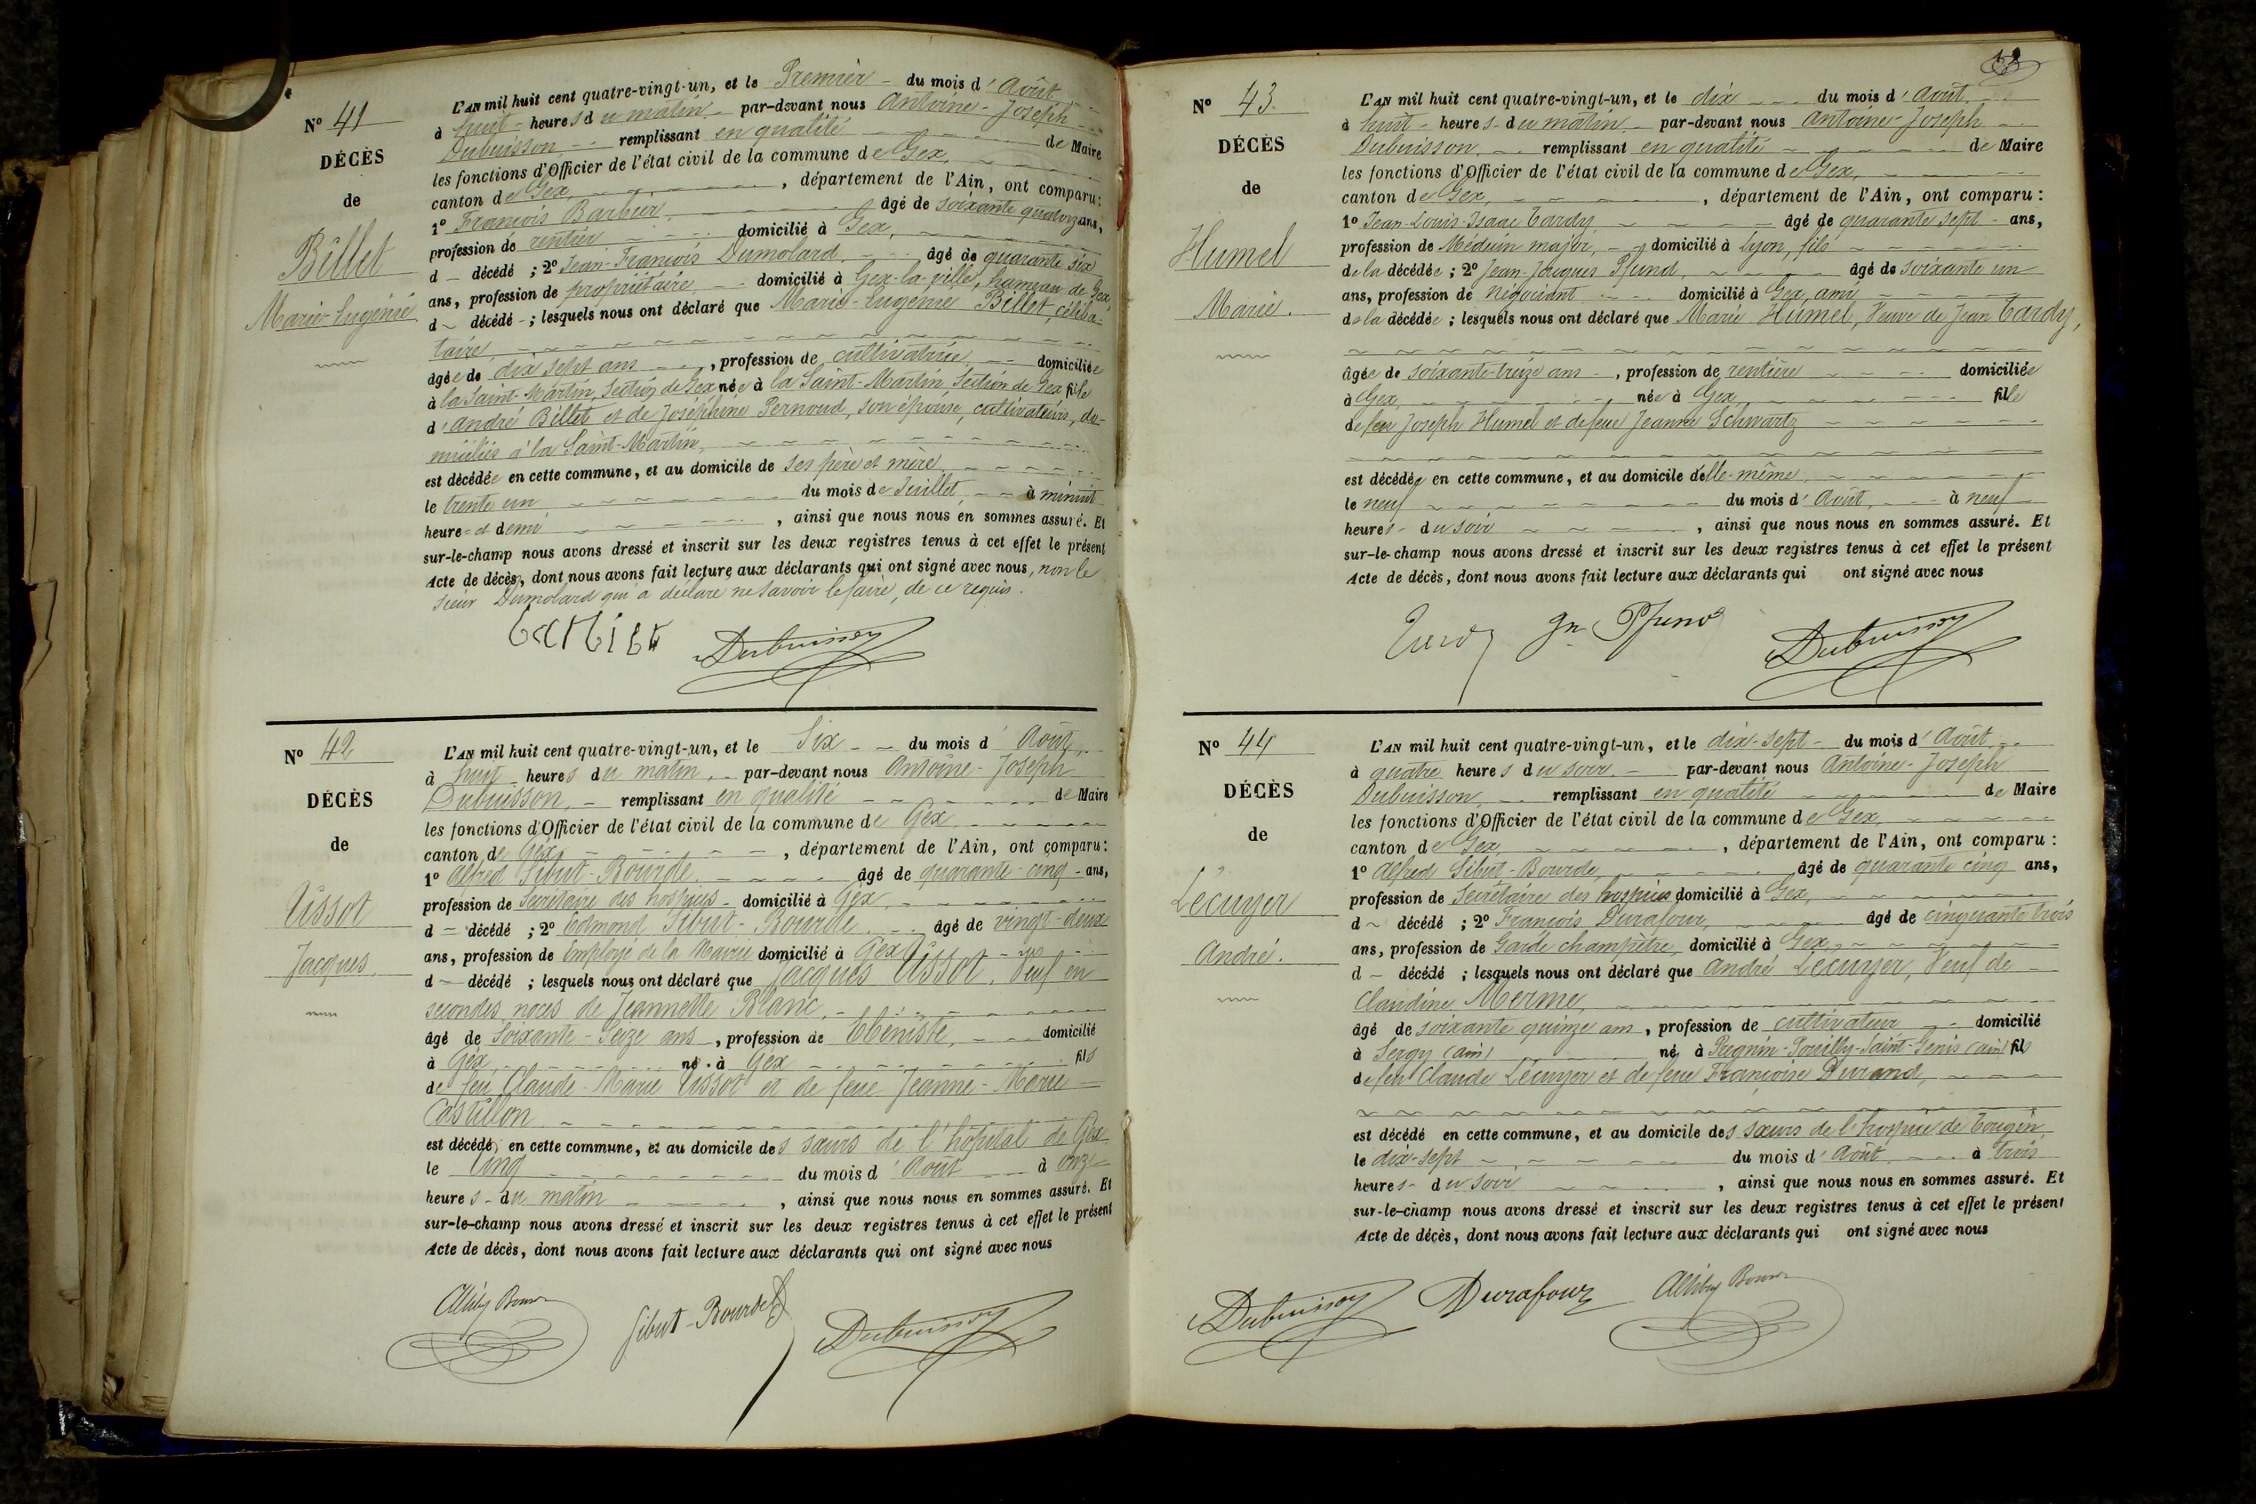 Nº 41
DÉCÈS
de
Billet
Marie-Eugénie
L'AN mil huit cent quatre-vingt-un, et le Premier du mois d'Août
à huit heures du matin par-devant nous Antoine-Joseph
Dubuisson remplissant en qualité de Maire
les fonctions d'Officier de l'état civil de la commune de Gex
canton de Gex, département de l'Ain, ont comparu :
1º François Barbier, âgé de soixante quatorze ans,
profession de rentier domicilié à Gex,
d décédé ; 2º Jean-François Dumolard, âgé de quarante six
ans, profession de propriétaire domicilié à Gex-la-ville, hameau de Gex
d décédé ; lesquels nous ont déclaré que Marie-Eugénie Billet, céliba-
taire,
âgée de dix sept ans, profession de cultivatrice domiciliée
à la Saint-Martin, Section de Gex née à la Saint-Martin Section de Gex fille
d'André Billet et de Joséphine Pernoud, son épouse, cultivateurs, do-
miciliés à la Saint-Martin,
est décédée en cette commune, et au domicile de ses père et mère
le trente un du mois de Juillet, à minuit
heure et demi, ainsi que nous nous en sommes assuré. Et
sur-le-champ nous avons dressé et inscrit sur les deux registres tenus à cet effet le présent
Acte de décès, dont nous avons fait lecture aux déclarants qui ont signé avec nous, non le
sieur Dumolard qui a déclaré ne savoir le faire, de ce requis.
barbier Dubuisson
Nº 42
DÉCÈS
de
Vissot
Jacques
L'AN mil huit cent quatre-vingt-un, et le Six du mois d'Août,
à huit heures du matin, par-devant nous Antoine-Joseph
Dubuisson, remplissant en qualité de Maire
les fonctions d'Officier de l'état civil de la commune de Gex
canton de Gex, département de l'Ain, ont comparu :
1º Alfred Sibut-Bourde, âgé de quarante-cinq ans,
profession de Secrétaire des hospices domicilié à Gex
d décédé ; 2º Edmond Sibut-Bourde âgé de vingt-deux
ans, profession de Employé de la Mairie domicilié à Gex
d décédé ; lesquels nous ont déclaré que Jacques Vissot, Veuf en
secondes noces de Jeannette Blanc,
âgé de Soixante-Seize ans, profession de Ebéniste, domicilié
à Gex né à Gex fils
de feu Claude-Marie Vissot et de feue Jeanne-Marie
Castillon
est décédé en cette commune, et au domicile des sœurs de l'hôpital de Gex
le Cinq du mois d'Août à onze
heures du matin, ainsi que nous nous en sommes assuré. Et
sur-le-champ nous avons dressé et inscrit sur les deux registres tenus à cet effet le présent
Acte de décès, dont nous avons fait lecture aux déclarants qui ont signé avec nous
Sibut-Bourde Dubuisson
Nº 43
DÉCÈS
de
Humel
Marie.
L'AN mil huit cent quatre-vingt-un, et le dix du mois d'Août
à huit heures du matin par-devant nous Antoine-Joseph
Dubuisson, remplissant en qualité de Maire
les fonctions d'Officier de l'état civil de la commune de Gex,
canton de Gex, département de l'Ain, ont comparu :
1º Jean-Louis-Isaac Tardy âgé de quarante sept ans,
profession de Médecin major, domicilié à Lyon, fils
de la décédée ; 2º Jean-Jacques Pfund, âgé de soixante un
ans, profession de négociant domicilié à Gex, ami
de la décédée ; lesquels nous ont déclaré que Marie Humel, Veuve de Jean Tardy,
âgée de soixante-treize ans, profession de rentière domiciliée
à Gex, née à Gex, fille
de feu Joseph Humel et de feue Jeanne Schwartz
est décédée en cette commune, et au domicile d'elle-même,
le neuf du mois d'Août, à neuf
heures du soir, ainsi que nous nous en sommes assuré. Et
sur-le-champ nous avons dressé et inscrit sur les deux registres tenus à cet effet le présent
Acte de décès, dont nous avons fait lecture aux déclarants qui ont signé avec nous
Tardy Jn Pfund Dubuisson
Nº 44
DÉCÈS
de
Lécuyer
André.
L'AN mil huit cent quatre-vingt-un, et le dix-sept du mois d'Août
à quatre heures du soir par-devant nous Antoine-Joseph
Dubuisson, remplissant en qualité de Maire
les fonctions d'Officier de l'état civil de la commune de Gex,
canton de Gex, département de l'Ain, ont comparu :
1º Alfred Sibut-Bourde, âgé de quarante cinq ans,
profession de Secrétaire des hospices domicilié à Gex,
d décédé ; 2º François Durafour, âgé de cinquante trois
ans, profession de Garde champêtre, domicilié à Gex,
d décédé ; lesquels nous ont déclaré que André Lécuyer, Veuf de
Claudine Merme,
âgé de soixante quinze ans, profession de cultivateur domicilié
à Sergy (ain) né à Pregnin-Pouilly-Saint-Genis (ain) fils
de feu Claude Lécuyer et de feue Françoise Durand,
est décédé en cette commune, et au domicile des sœurs de l'hospice de Tougin
le dix-sept du mois d'Août, à trois
heures du soir, ainsi que nous nous en sommes assuré. Et
sur-le-champ nous avons dressé et inscrit sur les deux registres tenus à cet effet le présent
Acte de décès, dont nous avons fait lecture aux déclarants qui ont signé avec nous
Dubuisson Durafour